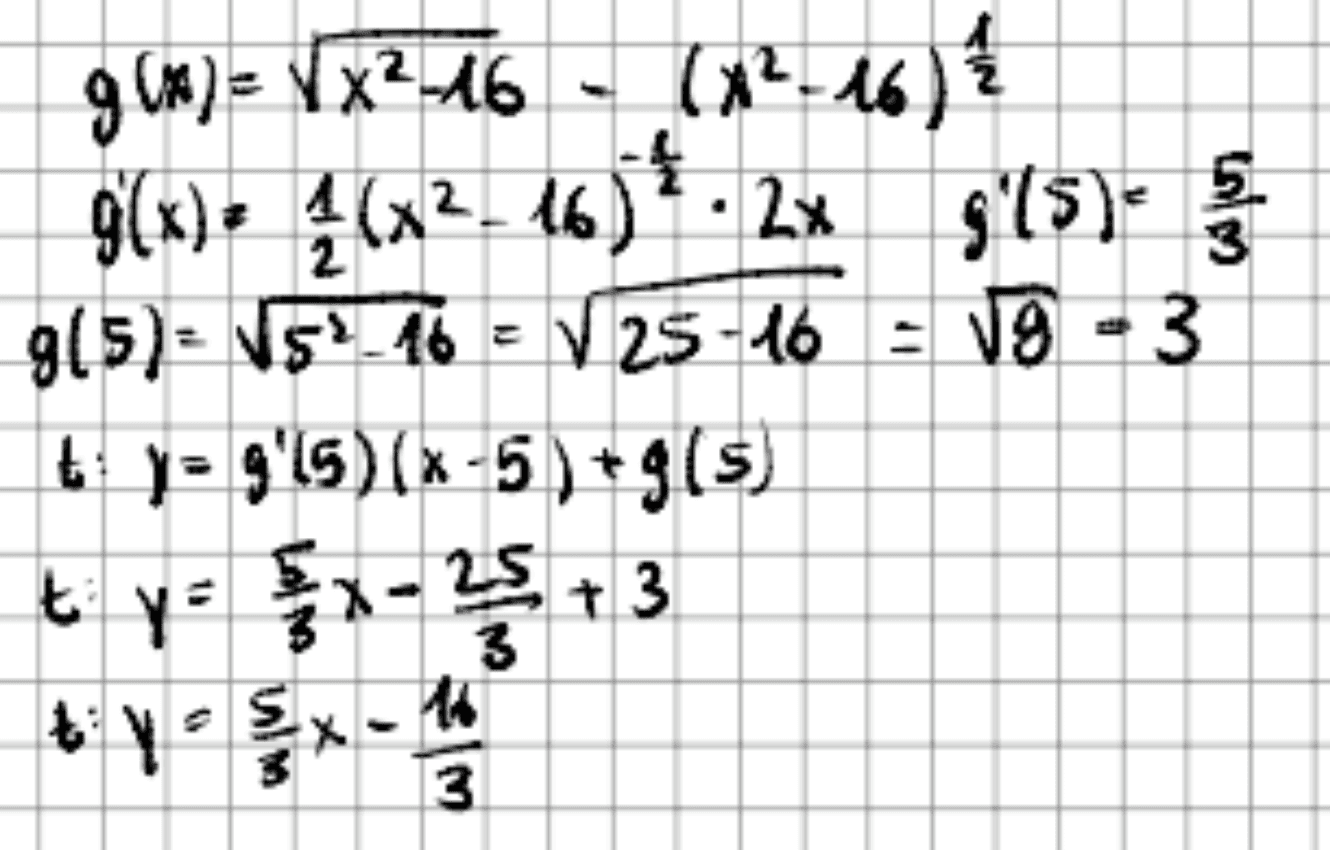 g(x) = √(x² - 16) - (x² - 16)^(1/2)
g'(x) = 1/2 (x² - 16)^(-1/2) · 2x   g'(5) = 5/3
g(5) = √(5² - 16) = √(25 - 16) = √9 = 3
t: y = g'(5)(x - 5) + g(5)
t: y = 5/3 x - 25/3 + 3
t: y = 5/3 x - 16/3